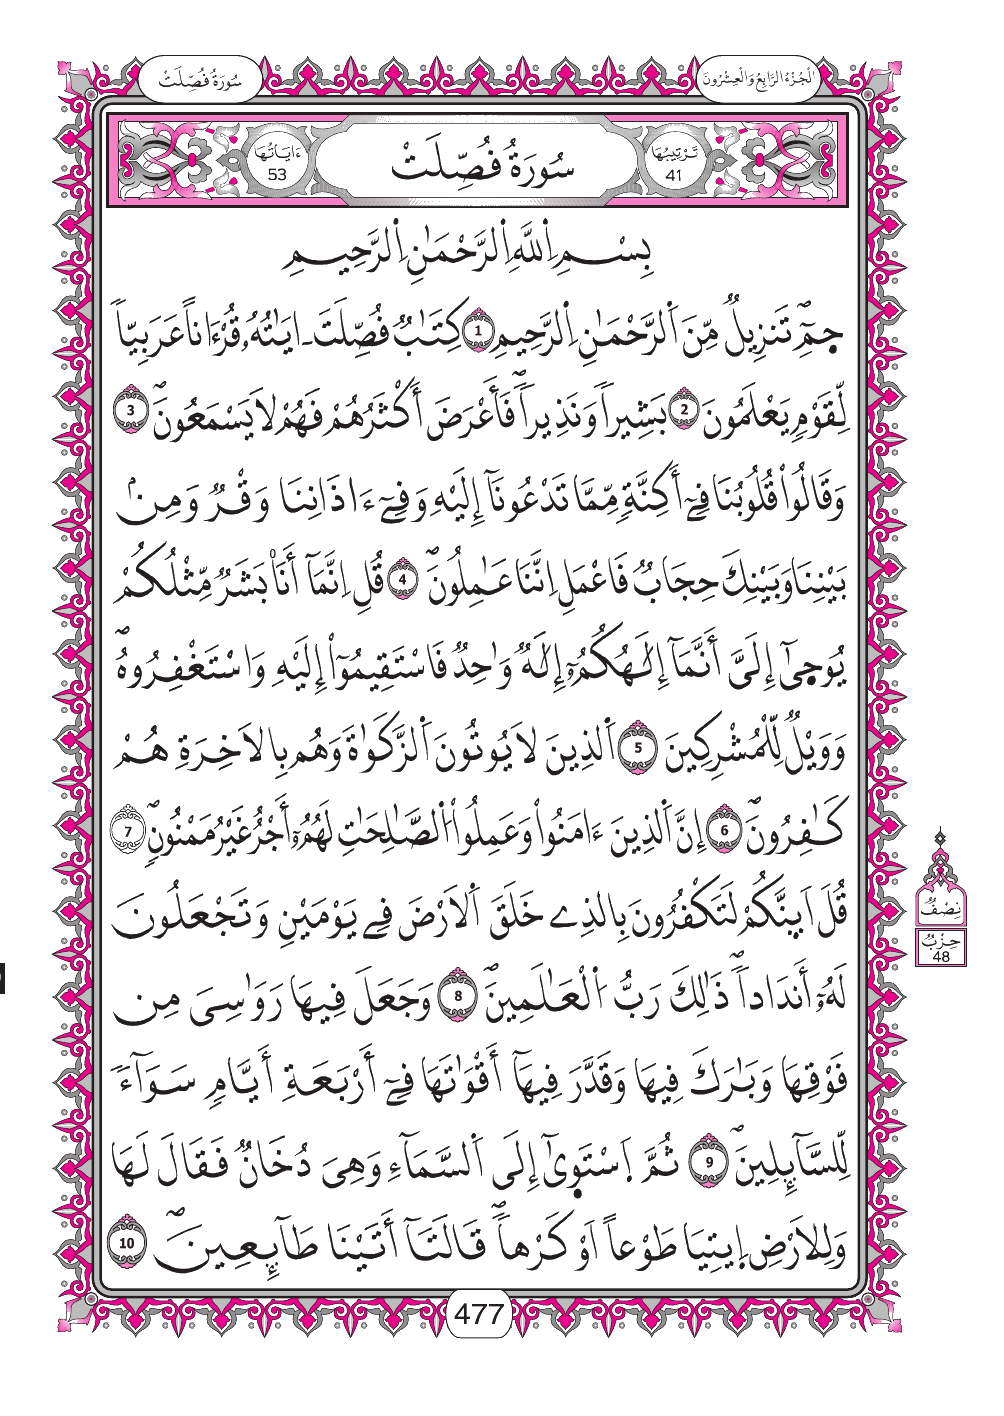 سُورَةُ فُصِّلَتْ
الْجُزْءُ الرَّابِعُ وَالْعِشْرُونَ
تَرْتِيبُهَا 41
سُورَةُ فُصِّلَتْ
ءَايَاتُهَا 53
بِسْمِ اِ۬للَّهِ اِ۬لرَّحْمَٰنِ اِ۬لرَّحِيمِ
جمِّٓ تَنزِيلٌ مِّنَ اَ۬لرَّحْمَٰنِ اِ۬لرَّحِيمِ 1 كِتَٰبٌ فُصِّلَتَ ـ ايَٰتُهُۥ قُرْءَاناً عَرَبِيّاٗ
لِّقَوْمٖ يَعْلَمُونَ 2 بَشِيراٗ وَنَذِيراٗۖ فَأَعْرَضَ أَكْثَرُهُمْ فَهُمْ لَا يَسْمَعُونَۖ 3
وَقَالُواْ قُلُوبُنَا فِےٓ أَكِنَّةٖ مِّمَّا تَدْعُونَآ إِلَيْهِ وَفِےٓ ءَاذَانِنَا وَقْرٞ وَمِنۢ
بَيْنِنَا وَبَيْنِكَ حِجَابٞ فَاعْمَلِ اِنَّنَا عَٰمِلُونَۖ 4 قُلِ اِنَّمَآ أَنَا۠ بَشَرٞ مِّثْلُكُمْ
يُوحَىٰٓ إِلَىَّ أَنَّمَآ إِلَٰهُكُمُۥٓ إِلَٰهٞ وَٰحِدٞ فَاسْتَقِيمُوٓاْ إِلَيْهِ وَاسْتَغْفِرُوهُۖ
وَوَيْلٞ لِّلْمُشْرِكِينَ 5 اَ۬لذِينَ لَا يُوتُونَ اَ۬لزَّكَوٰةَ وَهُم بِالَاخِرَةِ هُمْ
كَٰفِرُونَۖ 6 إِنَّ اَ۬لذِينَ ءَامَنُواْ وَعَمِلُواْ اُ۬لصَّٰلِحَٰتِ لَهُمُۥٓ أَجْرٌ غَيْرُ مَمْنُونٖۖ 7
قُلَ اَٮِٕنَّكُمْ لَتَكْفُرُونَ بِالذِے خَلَقَ اَ۬لَارْضَ فِے يَوْمَيْنِ وَتَجْعَلُونَ
لَهُۥٓ أَندَاداٗۖ ذَٰلِكَ رَبُّ اُ۬لْعَٰلَمِينَۖ 8 وَجَعَلَ فِيهَا رَوَٰسِىَ مِن
فَوْقِهَا وَبَٰرَكَ فِيهَا وَقَدَّرَ فِيهَآ أَقْوَٰتَهَا فِےٓ أَرْبَعَةِ أَيَّامٖ سَوَآءٗ
لِّلسَّآئِلِينَۖ 9 ثُمَّ اَ۪سْتَوَىٰٓ إِلَى اَ۬لسَّمَآءِ وَهِىَ دُخَانٞ فَقَالَ لَهَا
وَلِلَارْضِ اِ۪يتِيَا طَوْعاً اَوْ كَرْهاٗۖ قَالَتَآ أَتَيْنَا طَآئِعِينَۖ 10
نِصْفُ
حِزْبُ
48
477